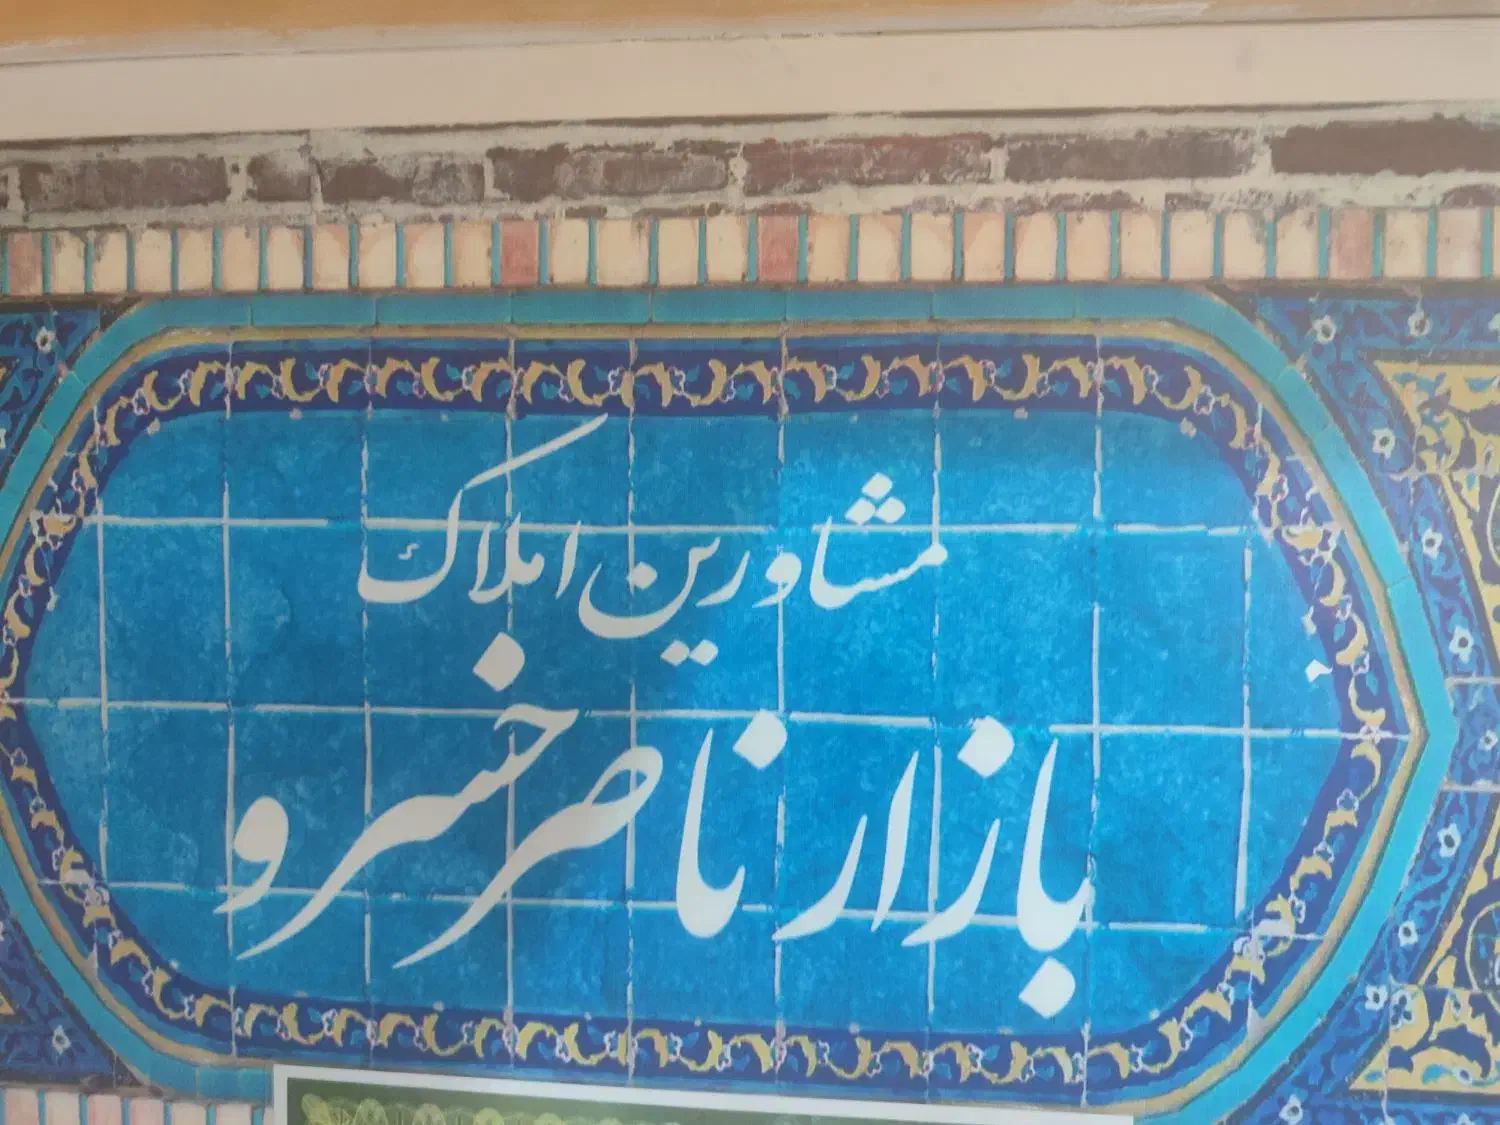 مشاورین املاک
بازار ناصر خسرو